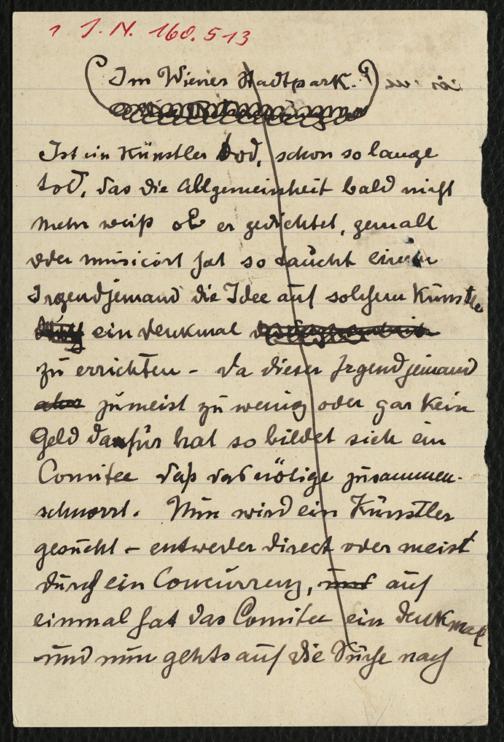 1 J.N. 160.513
(Im Wiener Stadtpark.)
Ist ein Künstler Tod, schon so lange
tot, das die Allgemeinheit bald nicht
mehr weiß ob er gedichtet, gemalt
oder musiciert hat so taucht in
Irgendjemand die Idee auf solchem Künstler
ein Denkmal
zu errichten – da dieser Irgendjemand
zumeist zu wenig oder gar kein
Geld dafür hat so bildet sich ein
Comitee daß das nötige zusammen-
schnorrt. Nun wird ein Künstler
gesucht – entweder direct oder meist
durch ein Concurrenz, auf
einmal hat das Comitee ein Denkmal
und nun gehts auf die Suche nach